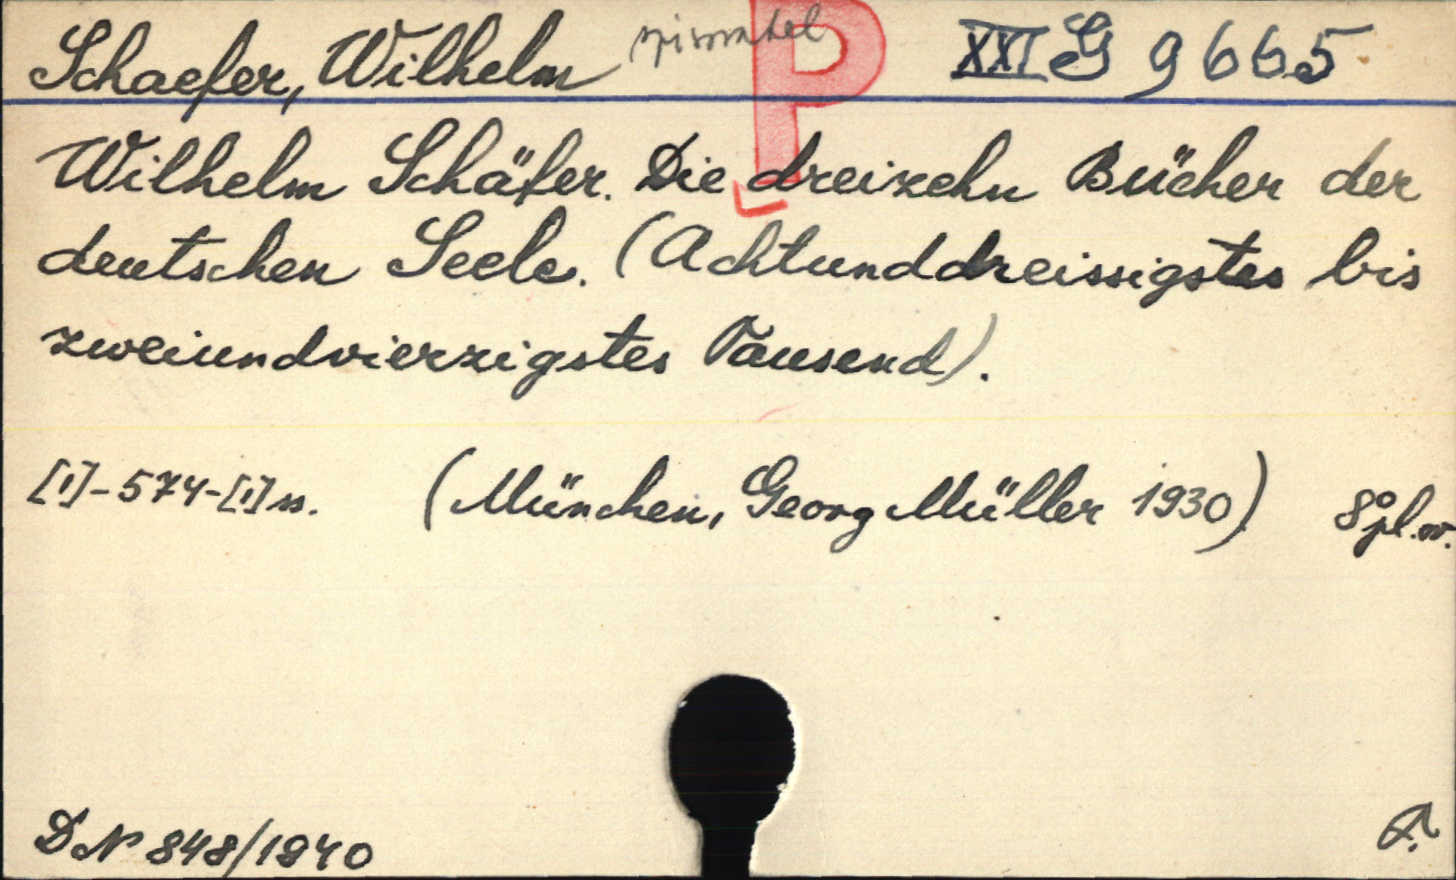 Schaefer, Wilhelm spisovatel P XXI G 9665
Wilhelm Schäfer. Die dreizehn Bücher der
deutschen Seele. (Achtunddreissigstes bis
zweiundvierzigstes Tausend).
[1]-574-[1] ss. (München, Georg Müller 1930) 8° pl. v.
DN 848/1940